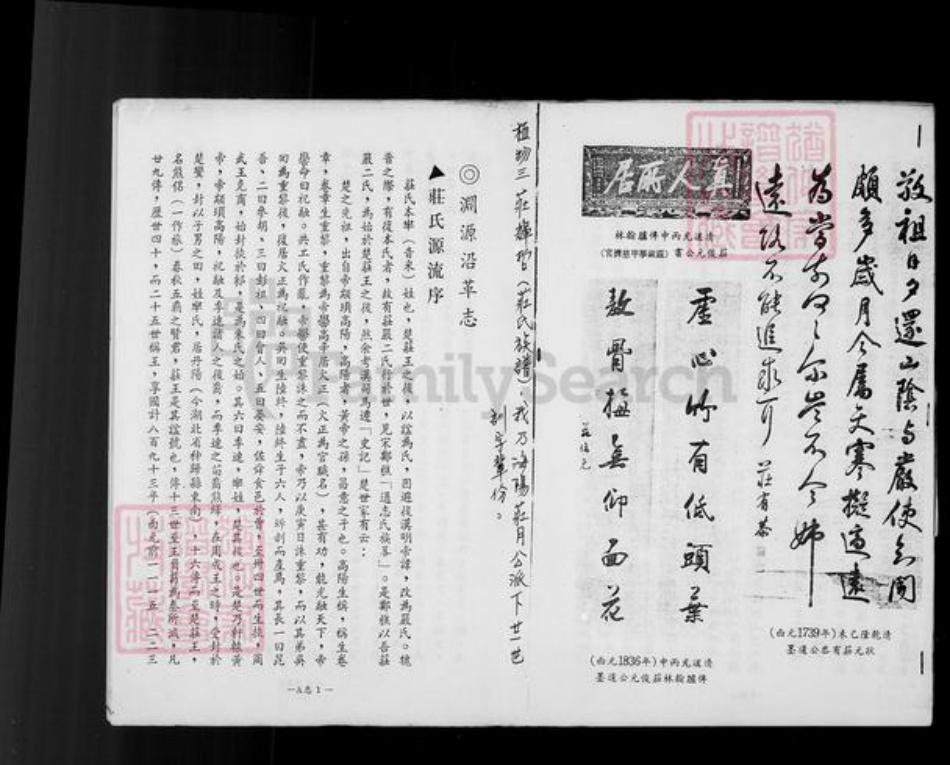 敬祖日夕還山陰与嚴使君聞
頗多歲月今屬天寒擬適遠
為當奈何々尔豈不令姊
遠路不能追求耳 莊有恭
清乾隆己未(西元1739年)
狀元莊有恭公遺墨
真人所居
清道光丙申傳臚翰林
莊俊元公書
虛心竹有低頭葉
敖骨梅無仰面花
莊俊元
清道光丙申(西元1836年)
傳臚翰林莊俊元公遺墨
(莊氏族譜),我乃海陽莊月公派下廿一世
◎淵源沿革志
▲莊氏源流序
莊氏本羋(音米)姓也,楚莊王之後,以諡為氏,因避後漢明帝諱,改為嚴氏。魏
晉之際,有復本氏者,故有莊嚴二氏行於世,見宋鄭樵「通志氏族畧」。是鄭樵以吾莊
嚴二氏,為始於楚莊王之後,然余考漢司馬遷「史記」楚世家有云:
楚之先祖,出自帝顓頊高陽,高陽者,黃帝之孫,昌意之子也。高陽生稱,稱生卷
章,卷章生重黎,重黎為帝嚳高辛居火正(火正為官職名),甚有功,能光融天下,帝
嚳命曰祝融。共工氏作亂,帝嚳使重黎誅之而不盡,帝乃以庚寅日誅重黎,而以其弟吳
回為重黎後,復居火正為祝融。吳回生陸終,陸終生子六人,坼剖而產焉,其長一曰昆
吾、二曰參胡、三曰彭祖、四曰會人、五曰晏安,佐舜食邑於曹,至卅四世而生挾,周
武王克商,始封挾於邾,是為朱氏之始。其六曰季連,羋姓,楚其後也。是楚乃軒轅黃
帝,帝顓頊高陽,祝融及季連諸人之後裔,而季連之苗裔熊繹,在周成王之時,受封於
楚蠻,封以子男之田,姓羋氏,居丹陽(今湖北省秭歸縣東南),十六傳而至楚莊王,
名熊侶(一作旅)春秋五霸之賢君,莊王是其諡號也,傳十三世至王負芻為秦所滅,凡
廿九傳,歷世四十,而二十五世稱王,享國計八百九十三年(西元前一一一五-二二三
—A志1—
FamilySearch